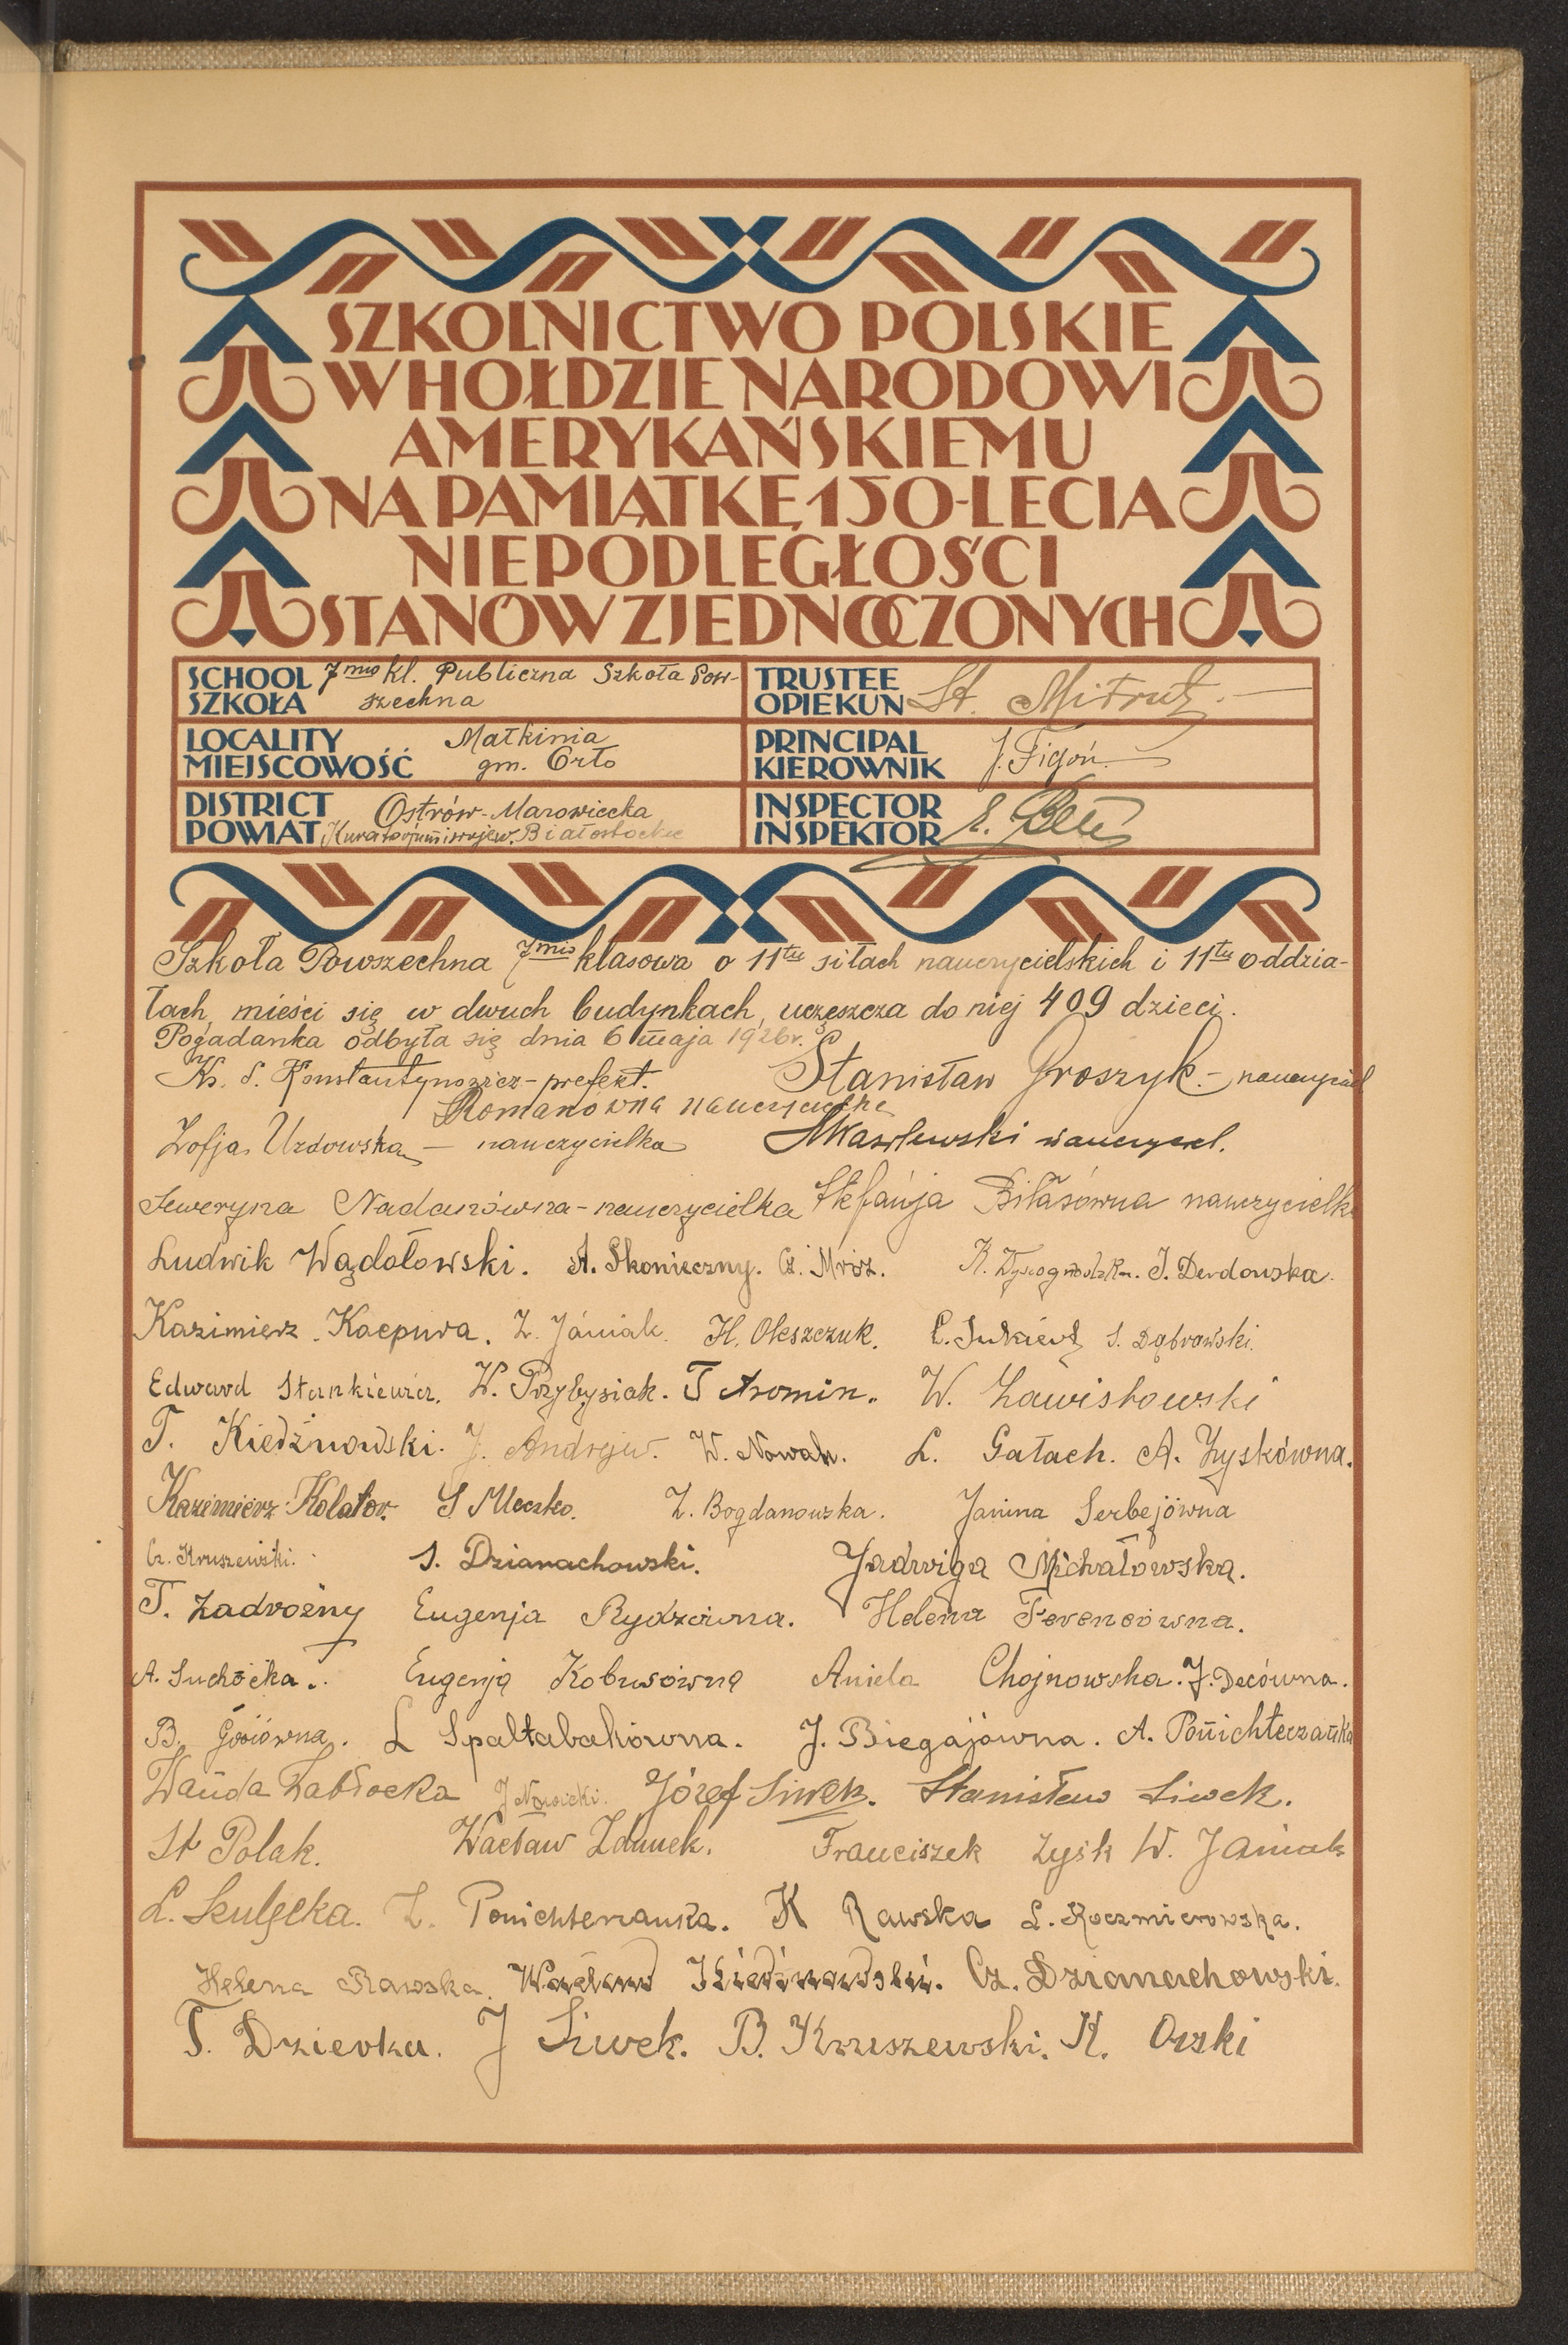 SZKOLNICTWO POLSKIE
W HOŁDZIE NARODOWI
AMERYKAŃSKIEMU
NA PAMIĄTKĘ 150-LECIA
NIEPODLEGŁOŚCI
STANÓW ZJEDNOCZONYCH
SCHOOL SZKOŁA 7mio kl. Publiczna Szkoła Pow-
szechna
TRUSTEE OPIEKUN St. Mitruk
LOCALITY MIEJSCOWOŚĆ Małkinia
gm. Orło
PRINCIPAL KIEROWNIK J. Figoń
DISTRICT POWIAT Ostrów-Mazowiecka
Białostockie
INSPECTOR INSPEKTOR
Szkoła Powszechna 7mio klasowa o 11tu siłach nauczycielskich i 11tu oddzia-
łach, mieści się w dwuch budynkach, uczęszcza do niej 409 dzieci.
Pogadanka odbyła się dnia 6 maja 1926r.
Ks. S. Konstantynowicz - prefekt. Stanisław Groszyk - nauczyciel
Romanówna nauczycielka
Zofja Uzdowska - nauczycielka Wasilewski nauczyciel.
Seweryna Nadanówna - nauczycielka Stefańja Biłasówna nauczycielk
Ludwik Wądołowski. A. Skonieczny. Cz. Mróz. J. Derdowska.
Kazimierz Kacpura. Z. Jániak. H. Oleszczuk. S. Dąbrowski.
Edward Stankiewicz. W. Przybysiak. T Aromin. W. Zawistowski
T. Kiedźnowski. J. Andrejw. W. Nowak. L. Gałach. A. Zyskówna.
Kazimierz Kolator. S Mleczko. Z. Bogdanowska. Janina Serbejówna
Cz. Kruszewski. S. Dzianachowski. Jadwiga Michałowska.
T. Zadrożny Eugenja Rydzówna. Helena Ferencówna.
A. Suchocka. Eugenja Kobusówna Aniela Chojnowska. J. Decówna.
B. Góśówna. L Spaltabakówna. J. Biegajówna. A. Pońichterzańka
Wańda Zabłocka J Nowicki. Józef Siwek. Stanisław Siwek.
St Polak. Wacław Zdunek. Franciszek Zyśk W. Janiak
L. Skulecka. Z. Ponichterzanka. K Rawska L. Koczmierowska.
Helena Rawska. Wacław Kiedźnowski. Cz. Dzianachowski.
T. Dzievka. J Siwek. B. Kruszewski. K. Orski